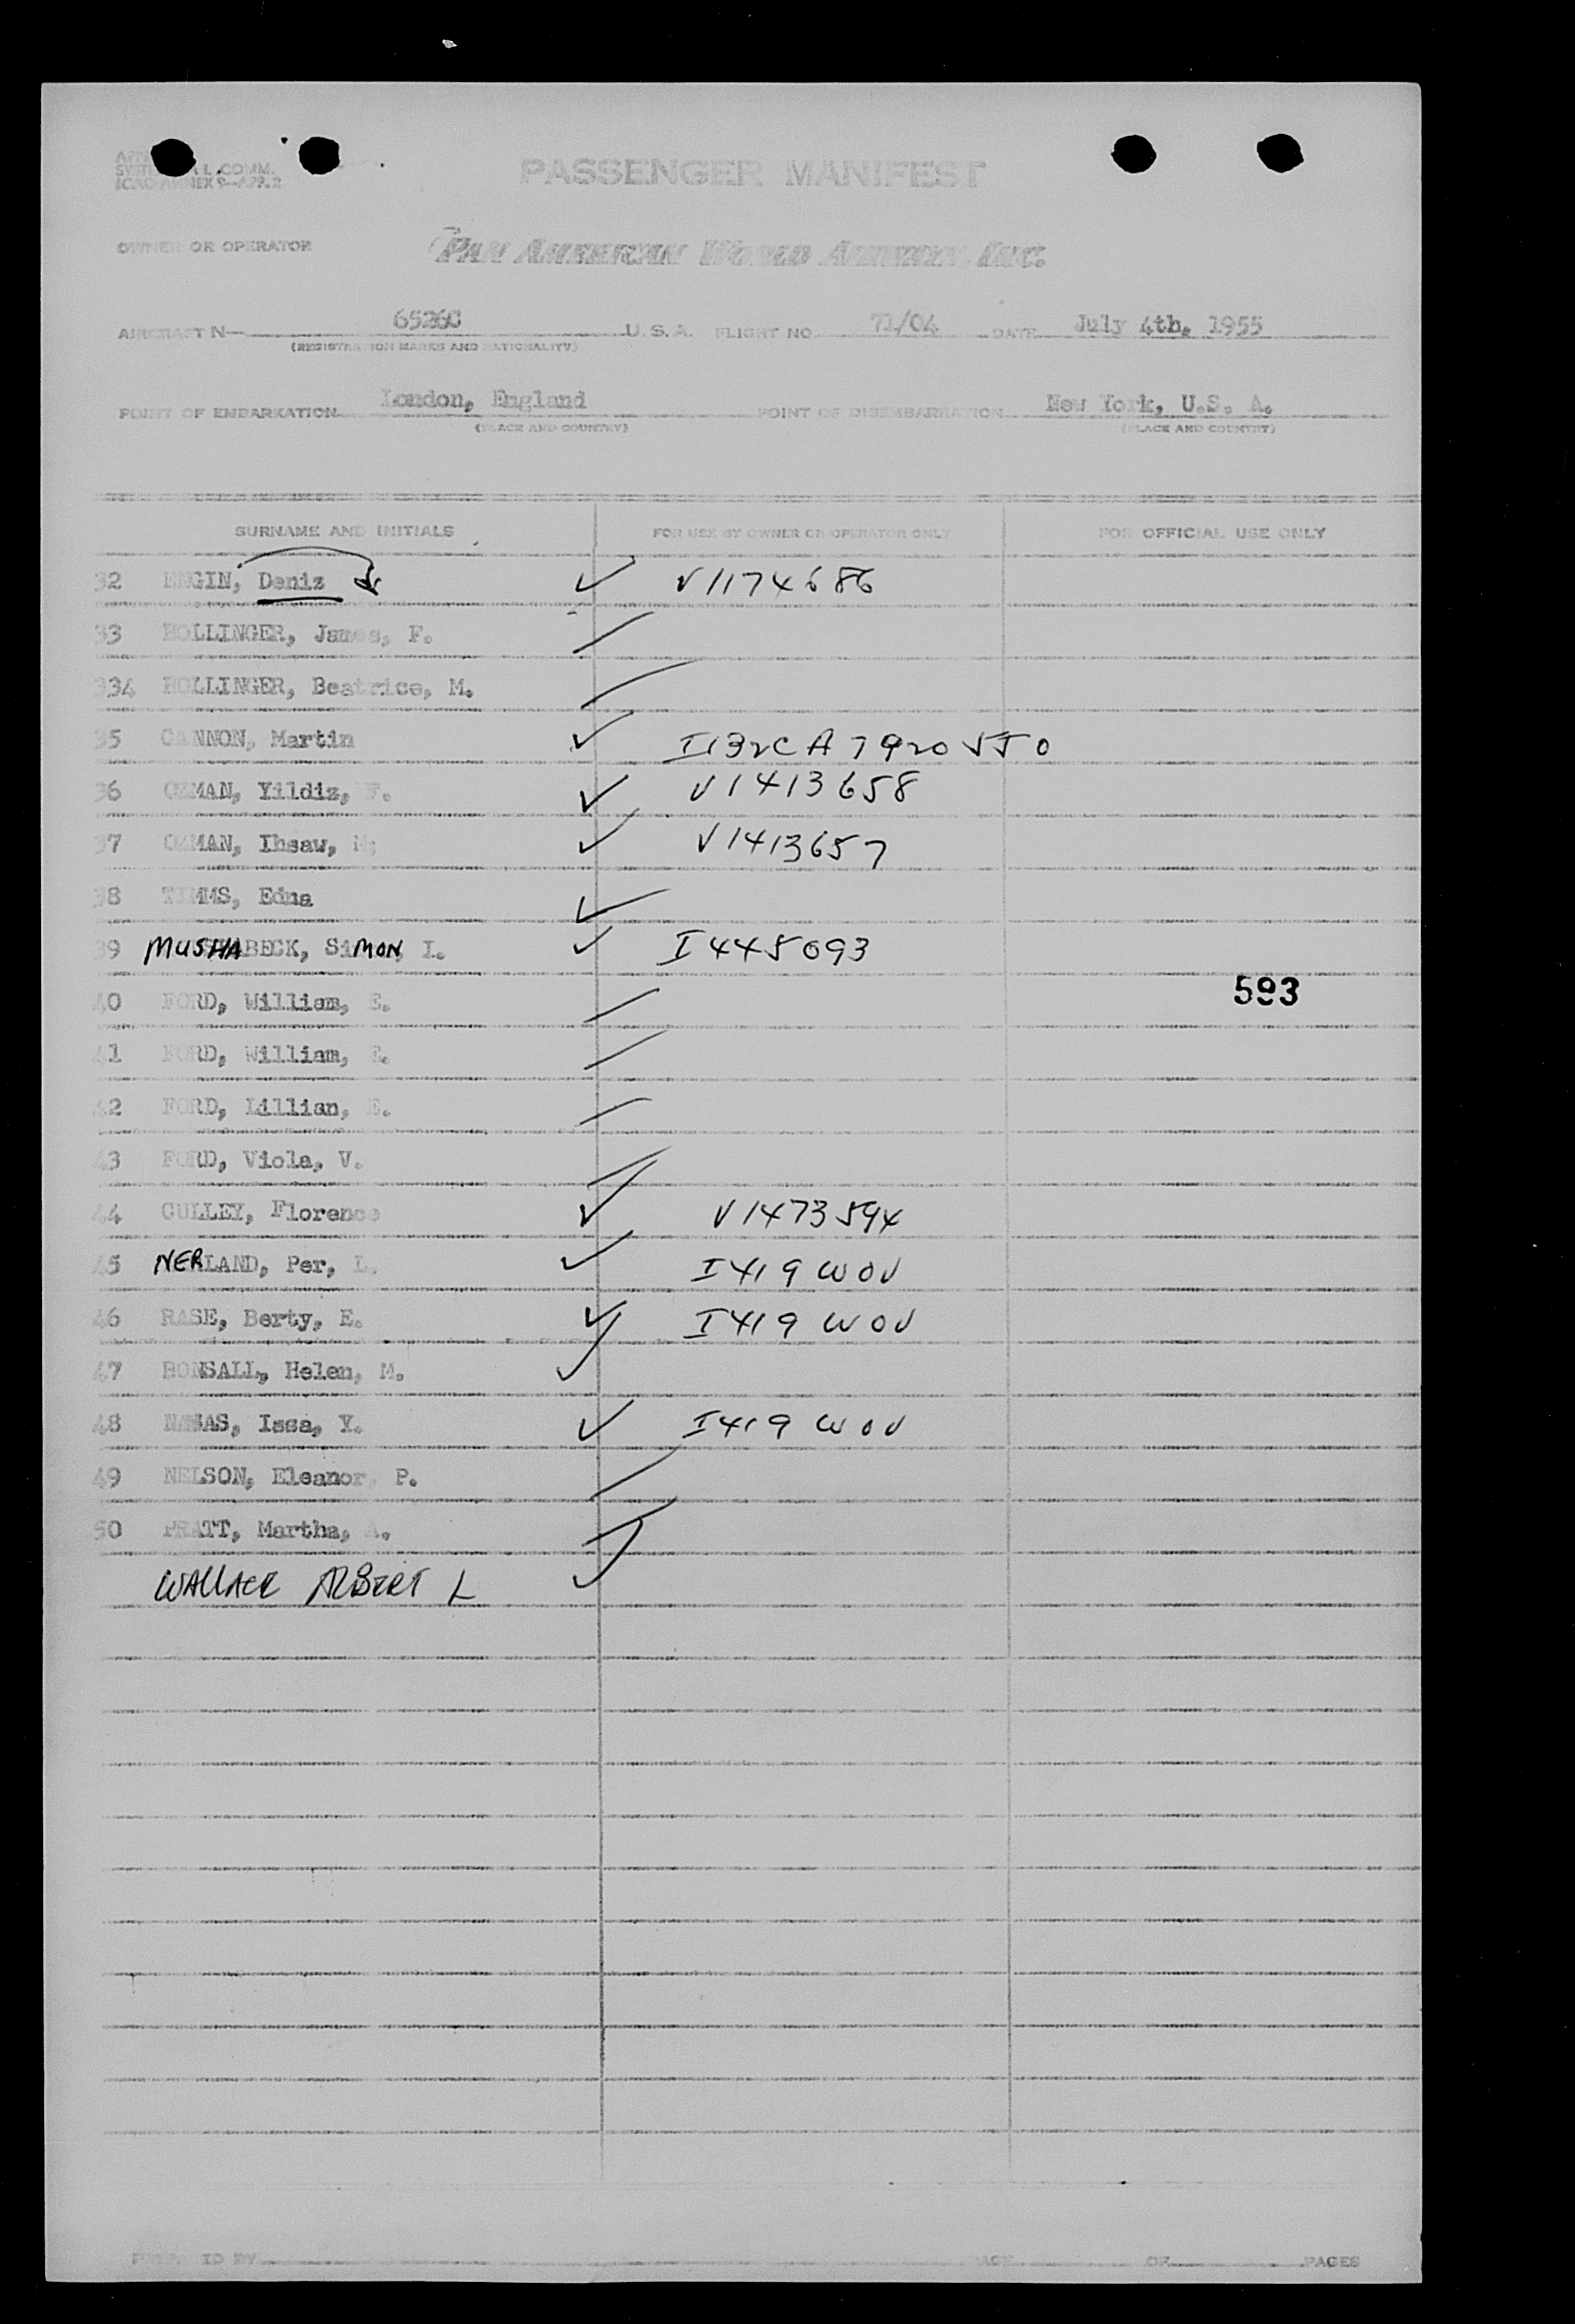 L COMM.
PASSENGER MANIFEST
OWNER OR OPERATOR PAN AMERICAN WORLD AIRWAYS INC.
AIRCRAFT N— 6526C U. S. A. FLIGHT NO 71/04 DATE July 4th, 1955
(REGISTRATION MARKS AND NATIONALITY)
POINT OF EMBARKATION London, England POINT OF DISEMBARKATION New York, U.S. A.
(PLACE AND COUNTRY) (PLACE AND COUNTRY)
SURNAME AND INITIALS FOR USE BY OWNER OR OPERATOR ONLY FOR OFFICIAL USE ONLY
32 ENGIN, Deniz ✓ V1174686
33 HOLLINGER, James, F.
334 HOLLINGER, Beatrice, M.
35 CANNON, Martin ✓
36 OZMAN, Yildiz, F. ✓ V1413658
37 OZMAN, Ihsaw, ✓ V1413657
38 TIMMS, Edna ✓
39 MUSHABECK, SiMON, I. ✓ I445093
593
40 FORD, William, E.
41 FORD, William, E.
42 FORD, Lillian, E.
43 FORD, Viola, V.
44 GULLEY, Florence ✓ V1473594
45 NERLAND, Per, L. ✓ I419 WOV
46 RASE, Berty, E. ✓ I419 WOV
47 BONSALL, Helen, M. ✓
48 Issa, Y. ✓ I419 WOV
49 NELSON, Eleanor, P.
50 PRATT, Martha, A.
WALLACE ALBERT L ✓
OF PAGES